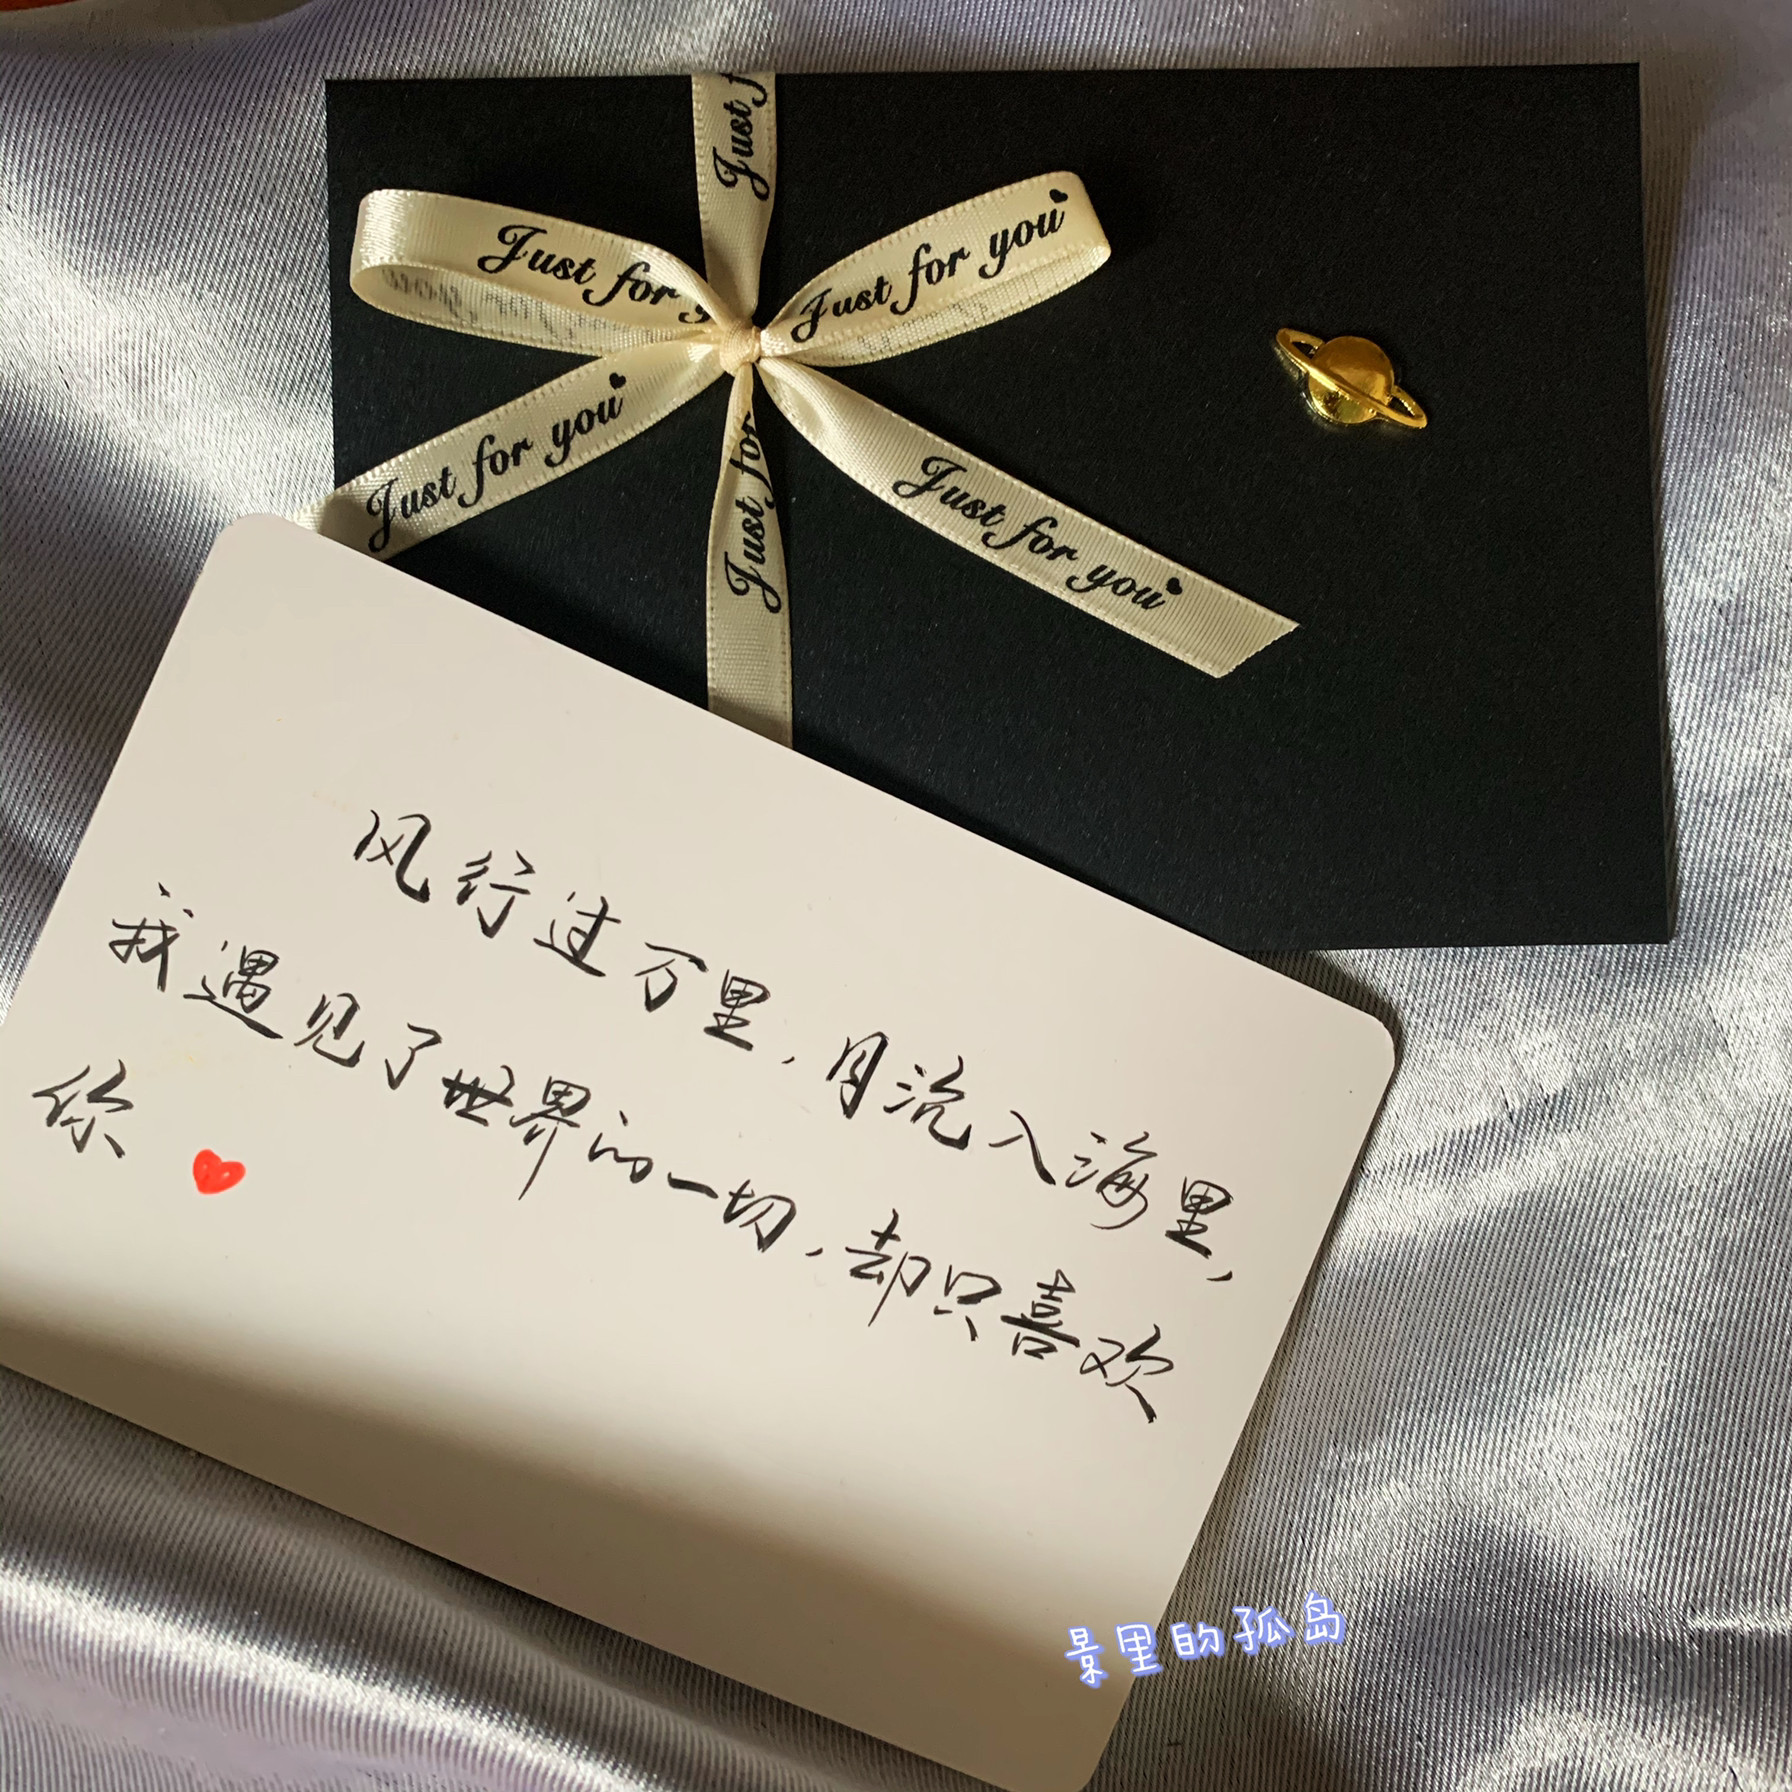 Just f
Just for y
Just for you
Just for you
Just for
Just for you
风行过万里,月沉入海里,
我遇见了世界的一切,却只喜欢
你
景里的孤岛